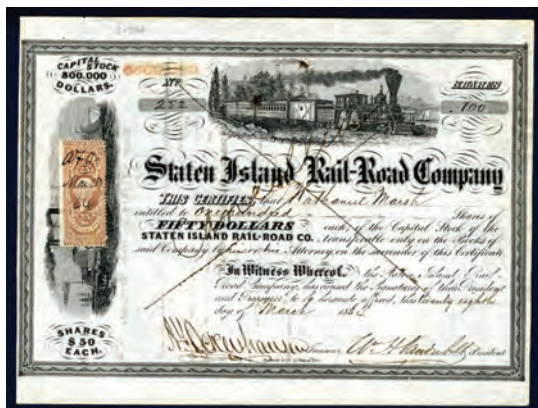 CAPITAL STOCK
800.000
DOLLARS.
No.
252
SHARES
100
Staten Island Rail-Road Company
THIS CERTIFIES, that Nathaniel Marsh
entitled to One hundred Shares of
FIFTY DOLLARS each, of the Capital Stock of the
STATEN ISLAND RAIL-ROAD CO. transferable only on the Books of
said Company by his Attorney on the surrender of this Certificate
In Witness Whereof, the Staten Island Rail-
Road Company, has caused the Signatures of their President
and Treasurer to be hereunto affixed, this twenty eighth
day of March
SHARES
$50
EACH.
Treasurer Wm H Vanderbilt President